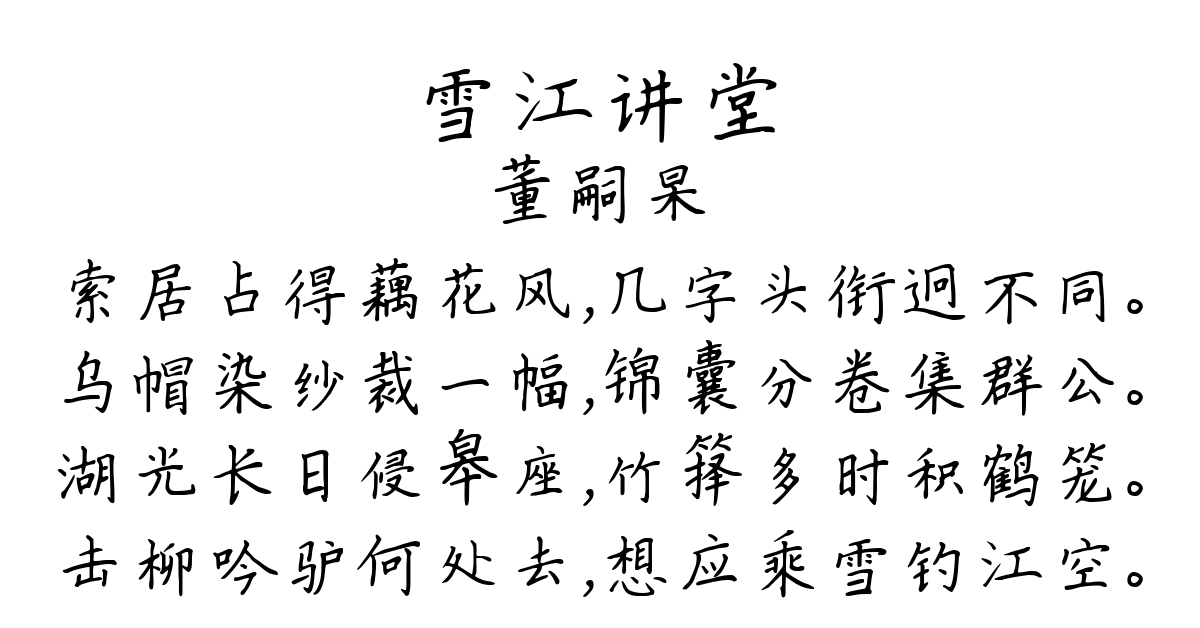 雪江讲堂
董嗣杲
索居占得藕花风,几字头衔迥不同。
乌帽染纱裁一幅,锦囊分卷集群公。
湖光长日侵皋座,竹箨多时积鹤笼。
击柳吟驴何处去,想应乘雪钓江空。